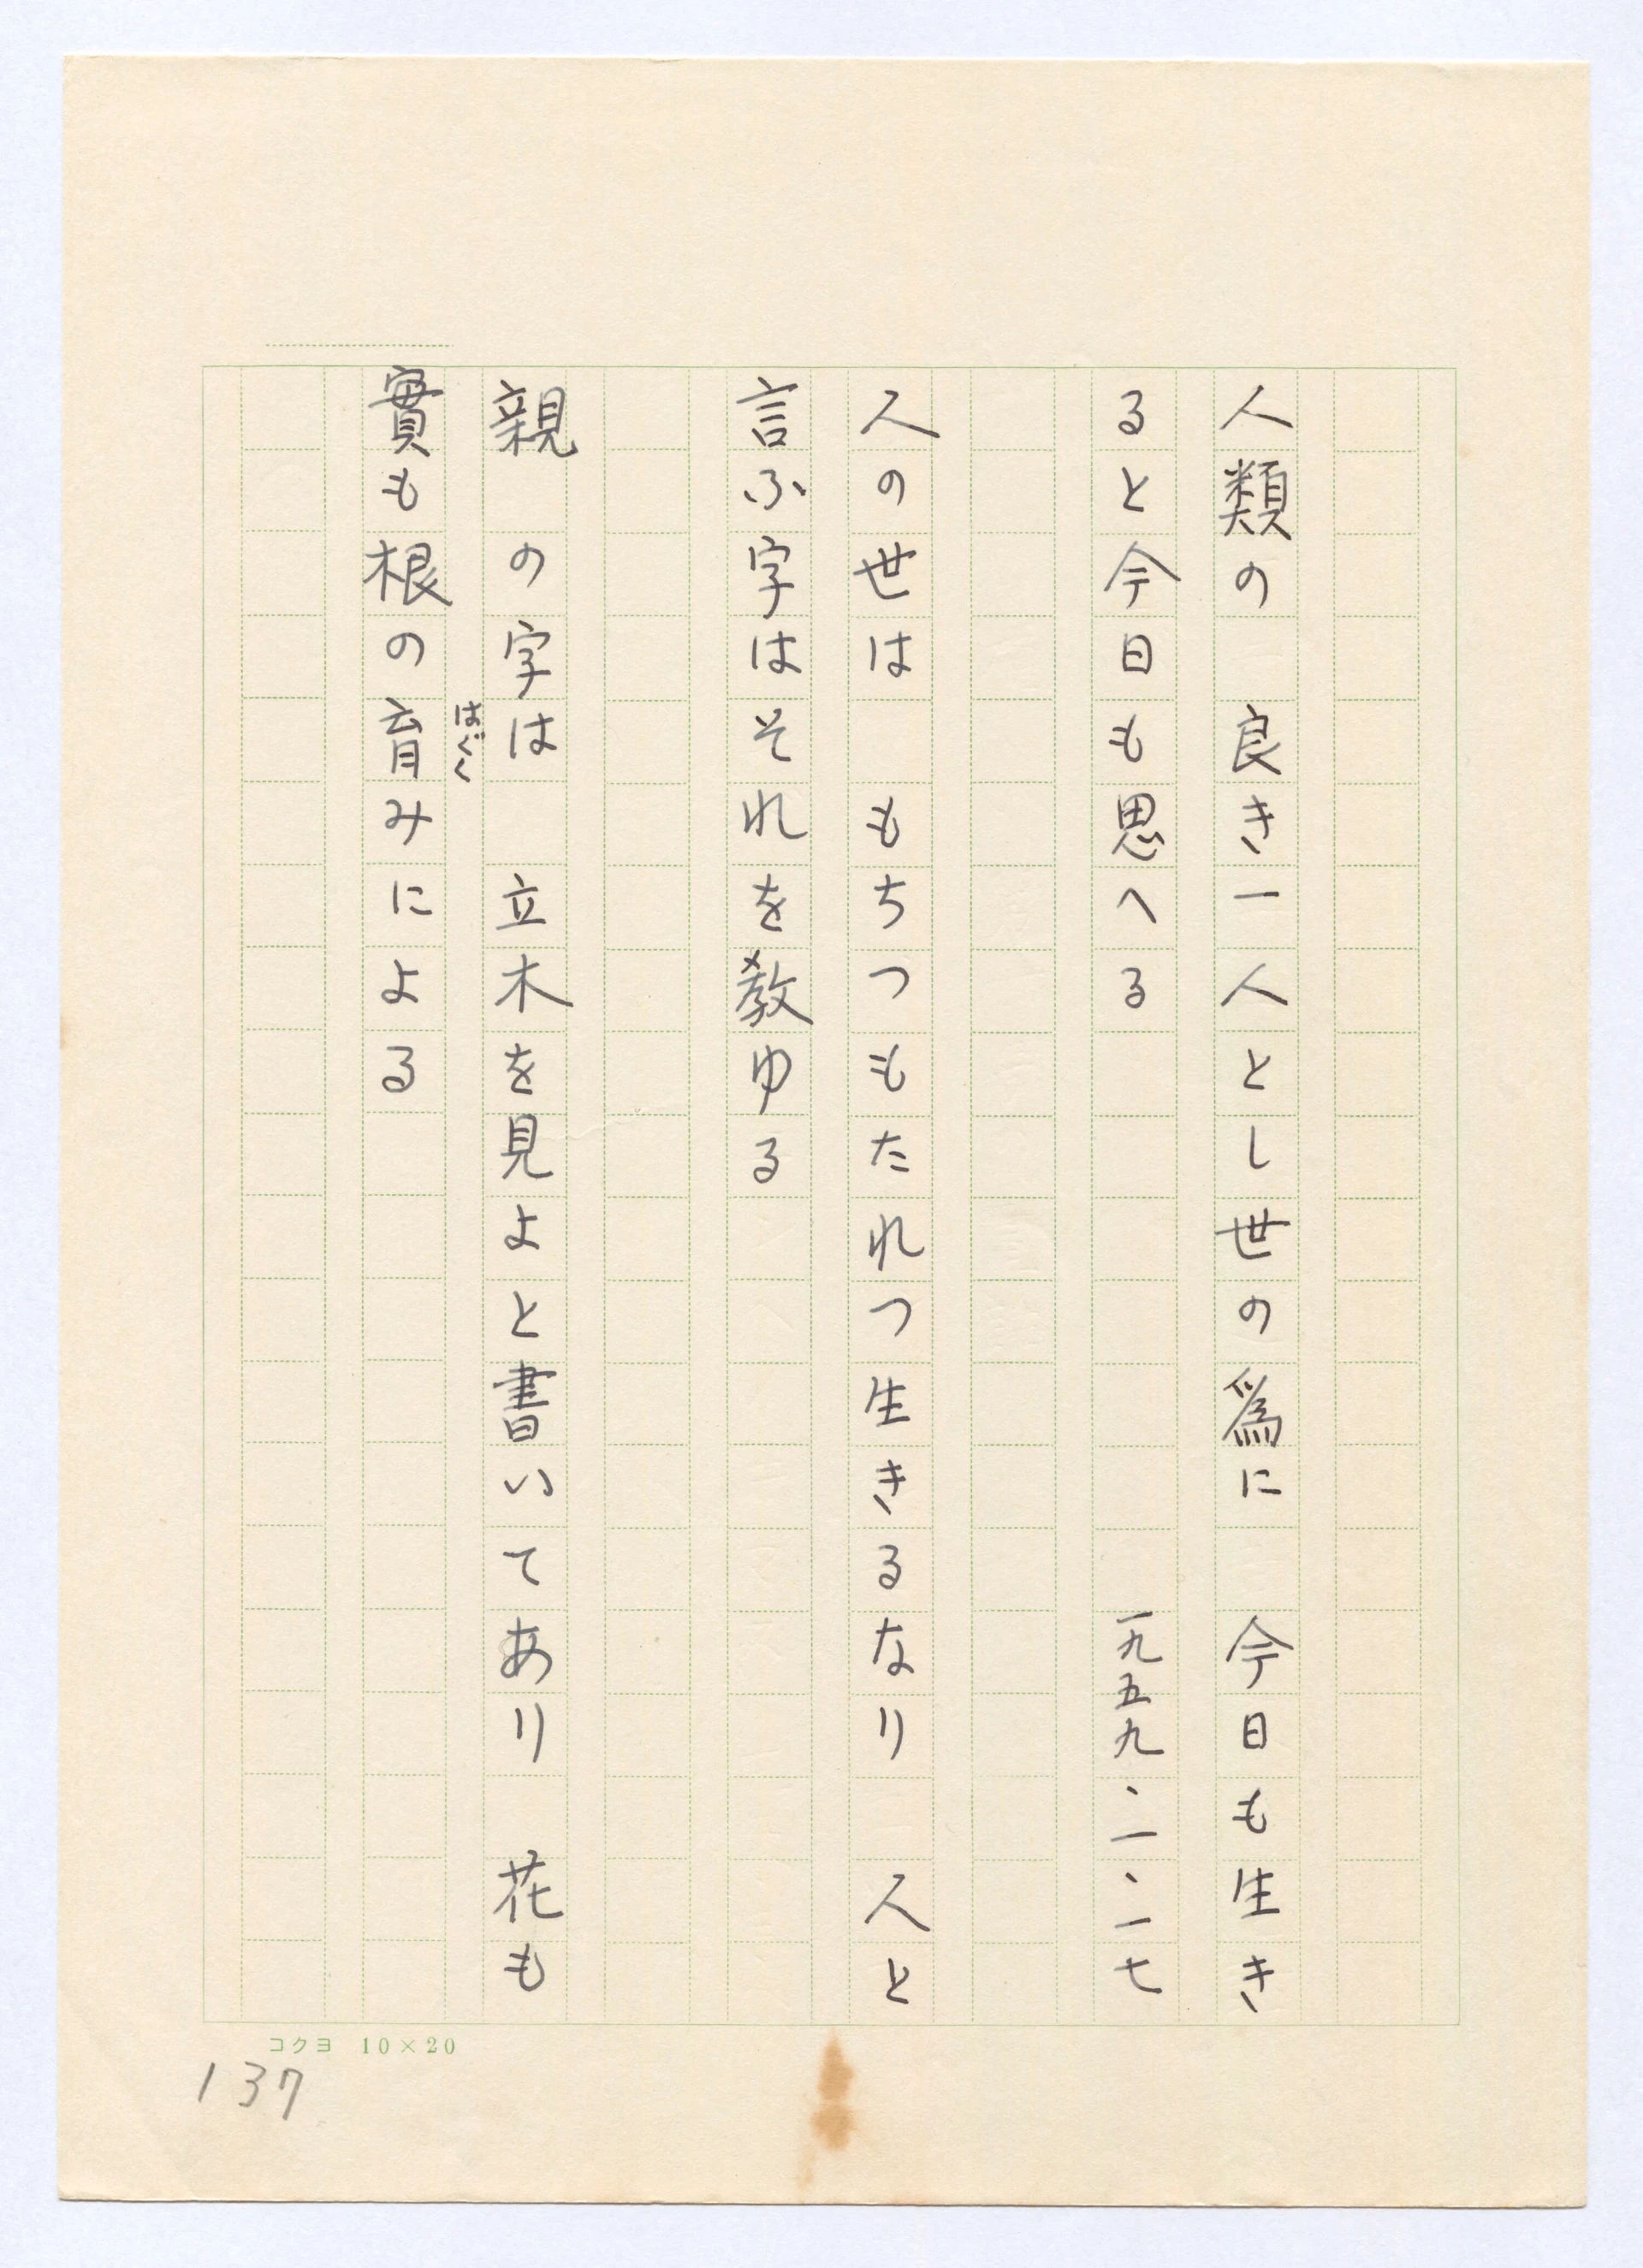 人類の　良き一人とし世の爲に　今日も生き
ると今日も思へる　一九五九・一・一七
人の世は　もちつもたれつ生きるなり　人と
言ふ字はそれを教ゆる
親　の字は　立木を見よと書いてあり　花も
はぐく
實も根の育みによる
コクヨ 10×20
137